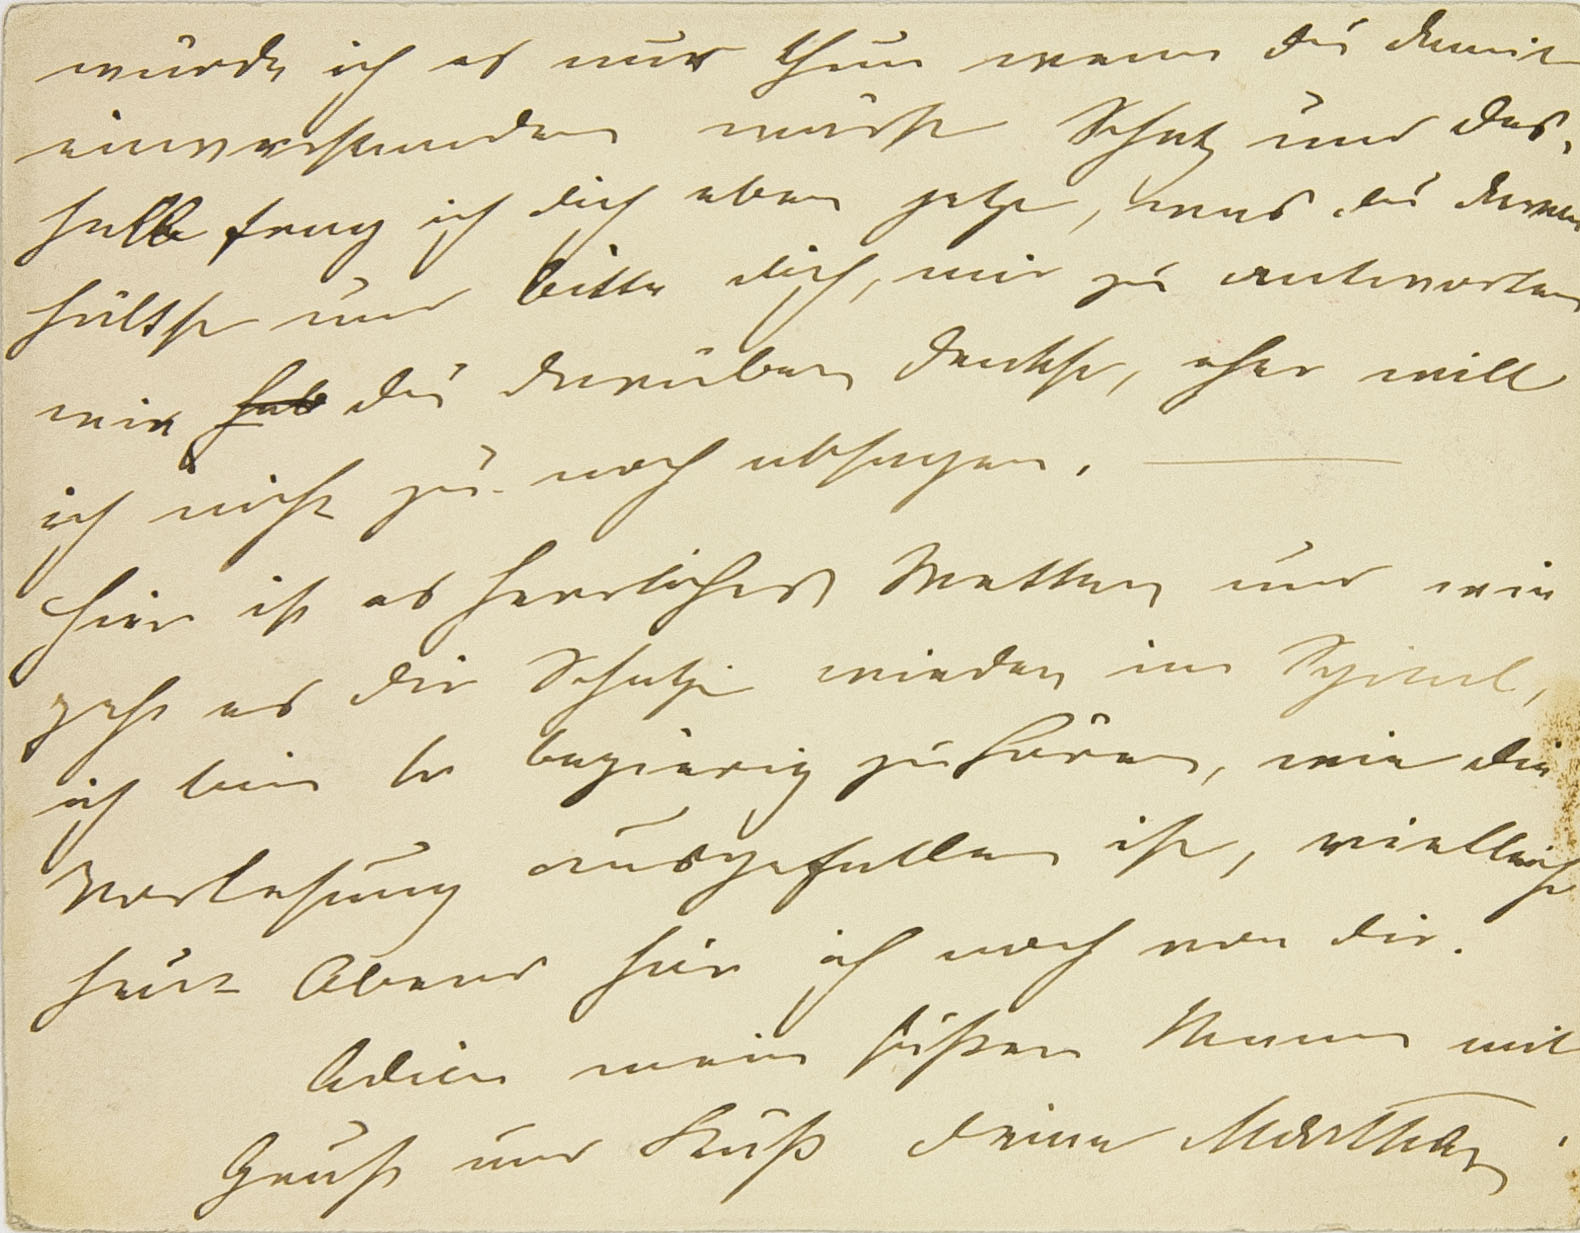 würde ich es nur thun wenn du damit
einverstanden wärst Schatz und des-
halb frag ich dich eben jetzt, was du davon
hältst und bitte dich, mir zu antworten
wie hab du darüber denkst, eher will
ich nicht zu noch absagen. —
Hier ist es herrlichstes Wetter und wie
geht es dir Schatzi wieder im Spital,
ich bin so begierig zu hören, wie die
Vorlesung ausgefallen ist, vielleicht
heut Abend hör ich noch von dir.
Adieu mein süßer Mann mit
Gruß und Kuß deine Martha.